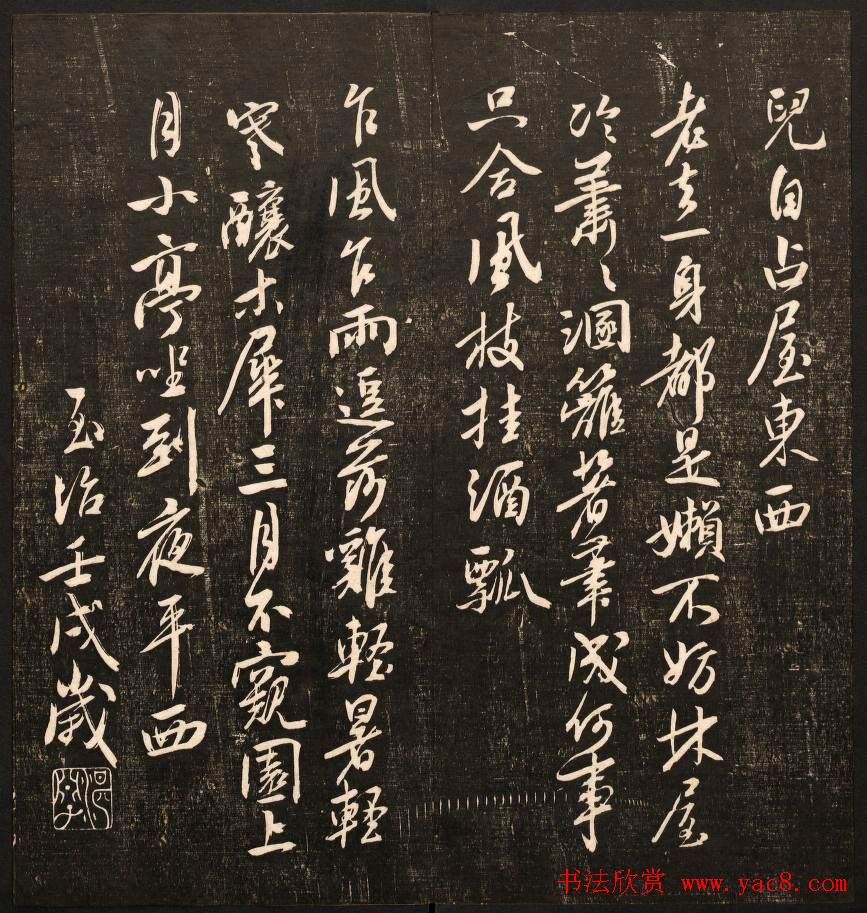 兒自占屋東西
老去一身都是嬾不妨林屋
冷蕭〻溷籬著筆成何事
只合風枝挂酒瓢
乍風乍雨逗莎雞輕暑輕
寒釀木犀三月不窺園上
月小亭坐到夜平西
至治壬戌歲
书法欣赏 www.yac8.com